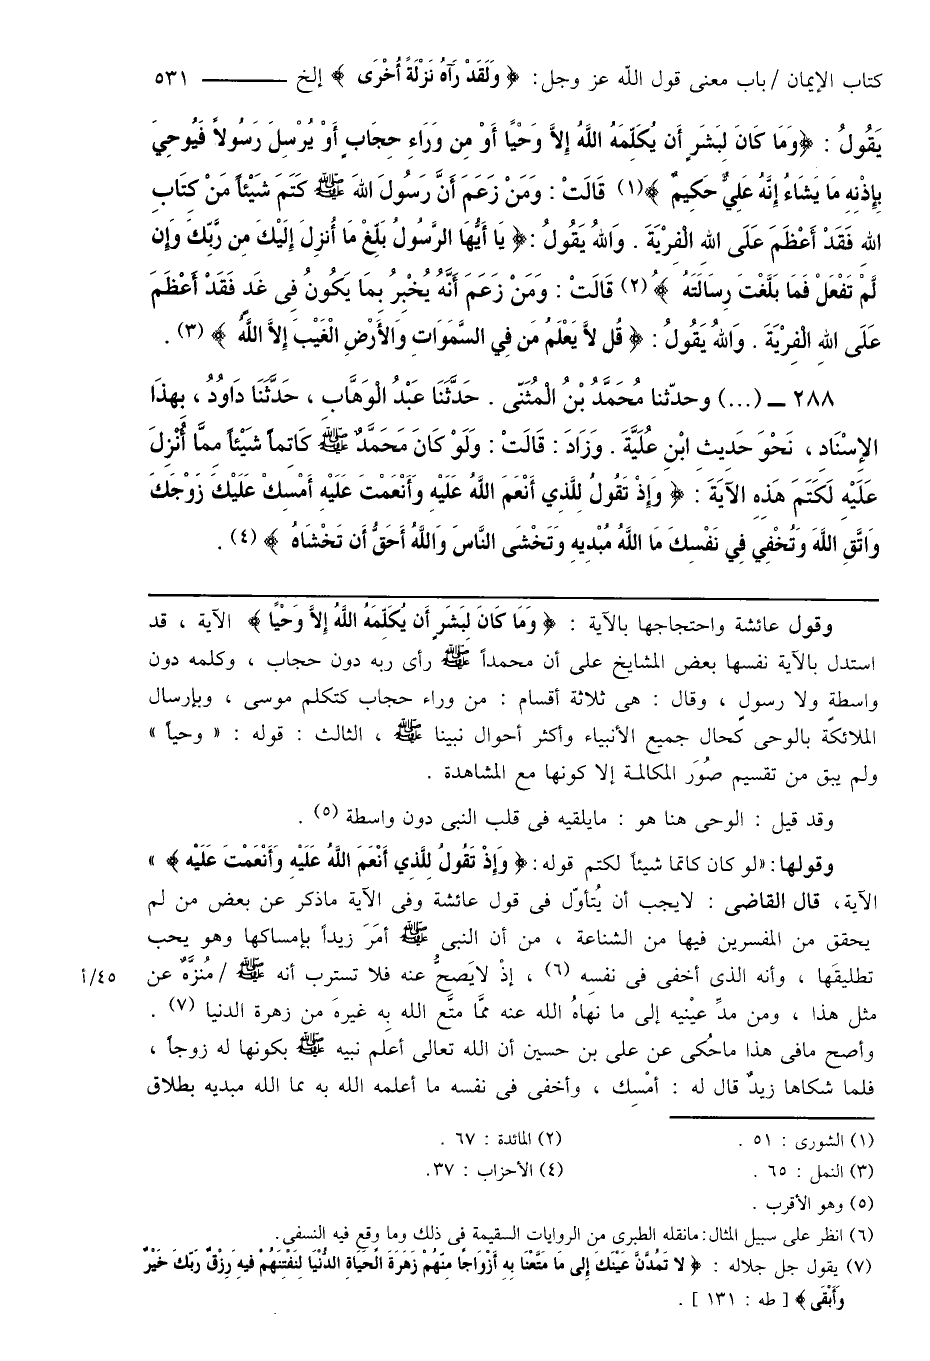 كتاب الإيمان / باب معنى قول الله عز وجل: ﴿ وَلَقَدْ رَآهُ نَزْلَةً أُخْرَى ﴾ إلخ ——— ٥٣١
يَقُولُ : ﴿وَمَا كَانَ لِبَشَرٍ أَن يُكَلِّمَهُ اللَّهُ إِلاَّ وَحْيًا أَوْ مِن وَرَاءِ حِجَابٍ أَوْ يُرْسِلَ رَسُولاً فَيُوحِيَ
بِإِذْنِهِ مَا يَشَاءُ إِنَّهُ عَلِيٌّ حَكِيمٌ ﴾(١) قَالَتْ : وَمَنْ زَعَمَ أَنَّ رَسُولَ اللهِ ﷺ كَتَمَ شَيْئاً مِنْ كِتَابِ
اللهِ فَقَدْ أَعْظَمَ عَلَى اللهِ الْفِرْيَةَ . وَاللهُ يَقُولُ :﴿ يَا أَيُّهَا الرَّسُولُ بَلِّغْ مَا أُنزِلَ إِلَيْكَ مِن رَّبِّكَ وَإِن
لَّمْ تَفْعَلْ فَمَا بَلَّغْتَ رِسَالَتَهُ ﴾(٢) قَالَتْ : وَمَنْ زَعَمَ أَنَّهُ يُخْبِرُ بِمَا يَكُونُ فِى غَدٍ فَقَدْ أَعْظَمَ
عَلَى اللهِ الْفِرْيَةَ . وَاللهُ يَقُولُ : ﴿ قُل لاَّ يَعْلَمُ مَن فِي السَّمَوَاتِ وَالأَرْضِ الْغَيْبَ إِلاَّ اللَّهُ ﴾ (٣) .
٢٨٨ ــ (...) وحدّثنا مُحَمَّدُ بْنُ الْمُثَنَّى . حَدَّثَنَا عَبْدُ الْوَهَّابِ ، حَدَّثَنَا دَاوُدُ ، بِهذَا
الإِسْنَادِ ، نَحْوَ حَدِيثِ ابْنِ عُلَيَّةَ . وَزَادَ : قَالَتْ : وَلَوْ كَانَ مُحَمَّدٌ ﷺ كَاتِماً شَيْئاً مِمَّا أُنْزِلَ
عَلَيْهِ لَكَتَمَ هَذِهِ الآيَةَ : ﴿ وَإِذْ تَقُولُ لِلَّذِي أَنْعَمَ اللَّهُ عَلَيْهِ وَأَنْعَمْتَ عَلَيْهِ أَمْسِكْ عَلَيْكَ زَوْجَكَ
وَاتَّقِ اللَّهَ وَتُخْفِي فِي نَفْسِكَ مَا اللَّهُ مُبْدِيهِ وَتَخْشَى النَّاسَ وَاللَّهُ أَحَقُّ أَن تَخْشَاهُ ﴾ (٤) .
وقول عائشة واحتجاجها بالآية : ﴿ وَمَا كَانَ لِبَشَرٍ أَن يُكَلِّمَهُ اللَّهُ إِلاَّ وَحْيًا ﴾ الآية ، قد
استدل بالآية نفسها بعض المشايخ على أن محمداً ﷺ رأى ربه دون حجاب ، وكلمه دون
واسطةٍ ولا رسولٍ ، وقال : هى ثلاثة أقسام : من وراء حجاب كتكلم موسى ، وبإرسال
الملائكة بالوحى كحال جميع الأنبياء وأكثر أحوال نبينا ﷺ ، الثالث : قوله : « وحياً »
ولم يبق من تقسيم صُوَر المكالمة إلا كونها مع المشاهدة .
وقد قيل : الوحى هنا هو : مايلقيه فى قلب النبى دون واسطة (٥) .
وقولها: «لو كان كاتما شيئاً لكتم قوله: ﴿ وَإِذْ تَقُولُ لِلَّذِي أَنْعَمَ اللَّهُ عَلَيْهِ وَأَنْعَمْتَ عَلَيْهِ ﴾ »
الآية، قال القاضى : لايجب أن يُتأوّل فى قول عائشة وفى الآية ماذكر عن بعض من لم
يحقق من المفسرين فيها من الشناعة ، من أن النبى ﷺ أمَرَ زيداً بإمساكها وهو يحب
تطليقَها ، وأنه الذى أخفى فى نفسه (٦) ، إذْ لايَصحُّ عنه فلا تسترب أنه ﷺ / مُنزَّهٌ عن
٤٥/أ
مثل هذا ، ومن مدِّ عيْنيه إلى ما نهاهُ الله عنه ممَّا متَّع الله به غيرهَ من زهرة الدنيا (٧) .
وأصح مافى هذا ماحُكى عن على بن حسين أن الله تعالى أعلم نبيه ﷺ بكونها له زوجاً ،
فلما شكاها زيدٌ قال له : أمْسِك ، وأخفى فى نفسه ما أعلمه الله به مما الله مبديه بطلاق
(١) الشورى : ٥١ .
(٢) المائدة : ٦٧ .
(٣) النمل : ٦٥ .
(٤) الأحزاب : ٣٧.
(٥) وهو الأقرب .
(٦) انظر على سبيل المثال: مانقله الطبرى من الروايات السقيمة فى ذلك وما وقع فيه النسفى.
(٧) يقول جل جلاله : ﴿ لا تَمُدَّنَّ عَيْنَيْكَ إِلَى مَا مَتَّعْنَا بِهِ أَزْوَاجًا مِّنْهُمْ زَهْرَةَ الْحَيَاةِ الدُّنْيَا لِنَفْتِنَهُمْ فِيهِ وَرِزْقُ رَبِّكَ خَيْرٌ
وَأَبْقَى ﴾ [ طه : ١٣١ ] .